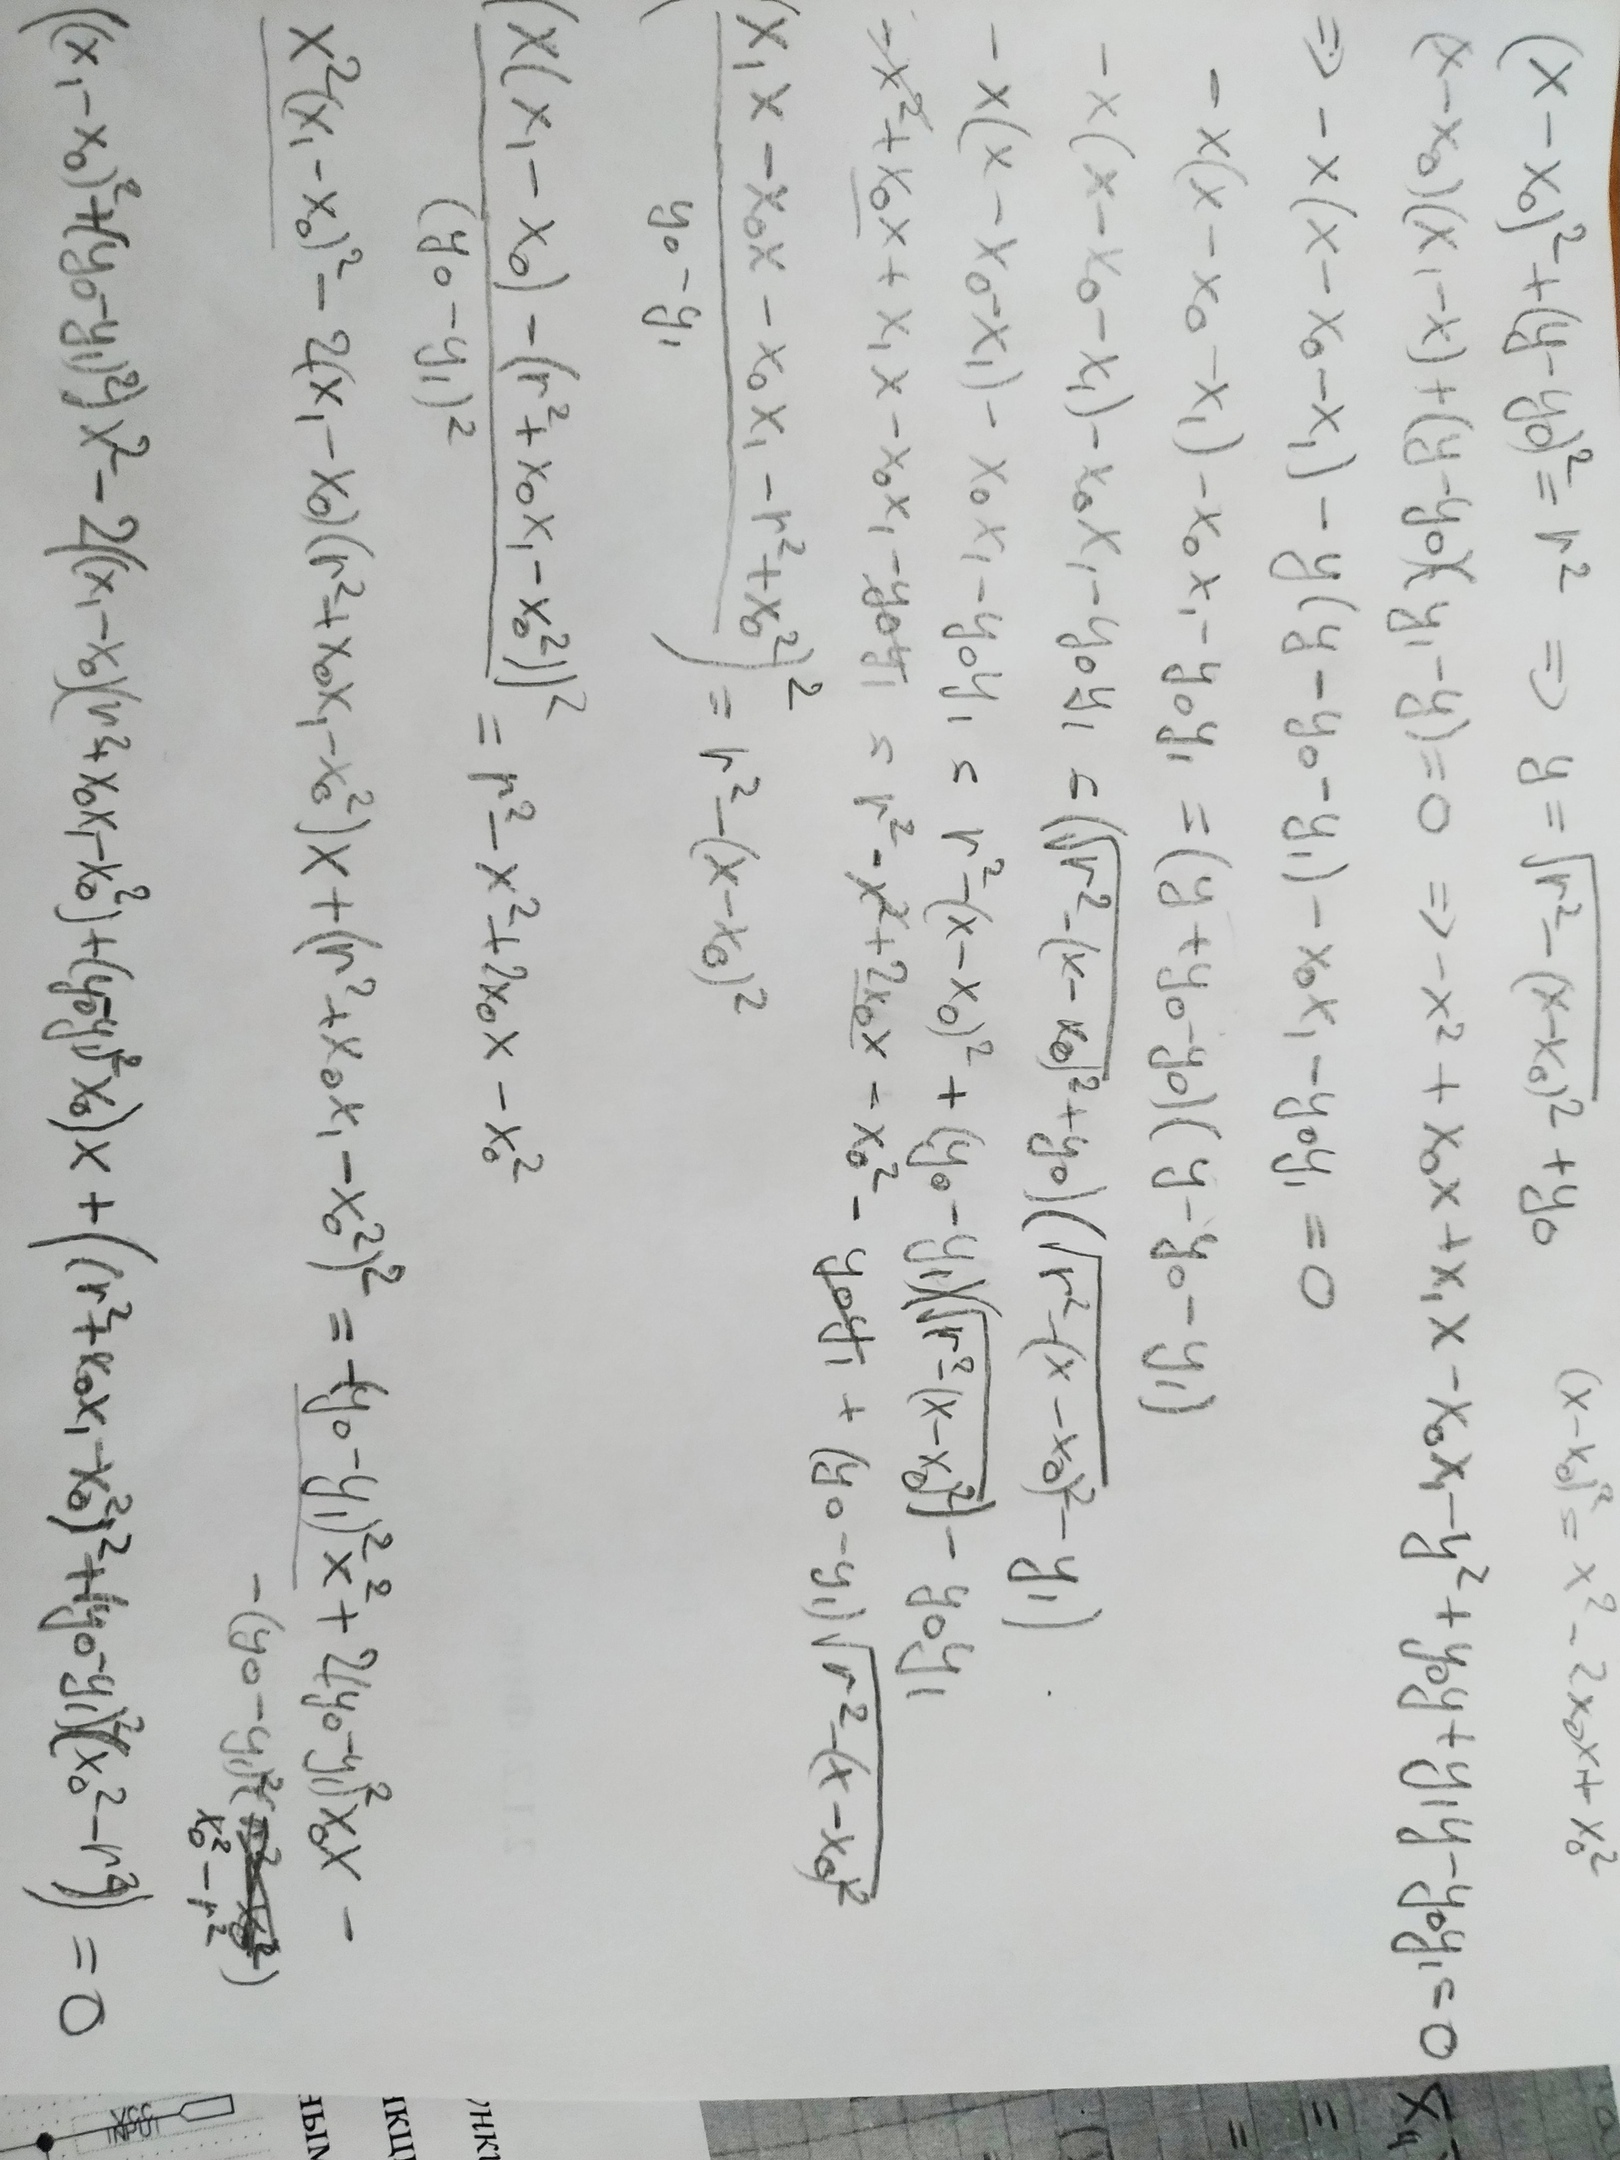 (x-x₀)² = x² - 2x₀x + x₀²
(x-x₀)² + (y-y₀)² = r² => y = √(r² - (x-x₀)²) + y₀
(x-x₀)(x₁-x) + (y-y₀)(y₁-y) = 0 => -x² + x₀x + x₁x - x₀x₁ - y² + y₀y + y₁y - y₀y₁ = 0
=> -x(x-x₀-x₁) - y(y-y₀-y₁) - x₀x₁ - y₀y₁ = 0
-x(x-x₀-x₁) - x₀x₁ - y₀y₁ = (y+y₀-y₀)(y-y₀-y₁)
-x(x-x₀-x₁) - x₀x₁ - y₀y₁ = (√(r²-(x-x₀)²) + y₀)(√(r²-(x-x₀)²) - y₁)
-x(x-x₀-x₁) - x₀x₁ - y₀y₁ = r² - (x-x₀)² + (y₀-y₁)(√(r²-(x-x₀)²)) - y₀y₁
-x² + x₀x + x₁x - x₀x₁ - y₀y₁ = r² - x² + 2x₀x - x₀² - y₀y₁ + (y₀-y₁)√(r²-(x-x₀)²)
((x₁x - x₀x - x₀x₁ - r² + x₀²)/(y₀-y₁))² = r² - (x-x₀)²
(x(x₁-x₀) - (r² + x₀x₁ - x₀²))²/(y₀-y₁)² = r² - x² + 2x₀x - x₀²
x²(x₁-x₀)² - 2(x₁-x₀)(r² + x₀x₁ - x₀²)x + (r² + x₀x₁ - x₀²)² = -(y₀-y₁)²x² + 2(y₀-y₁)²x₀x -
-(y₀-y₁)²(x₀² - r²)
((x₁-x₀)² + (y₀-y₁)²)x² - 2((x₁-x₀)(r² + x₀x₁ - x₀²) + (y₀-y₁)²x₀)x + ((r² + x₀x₁ - x₀²)² + (y₀-y₁)²(x₀² - r²)) = 0